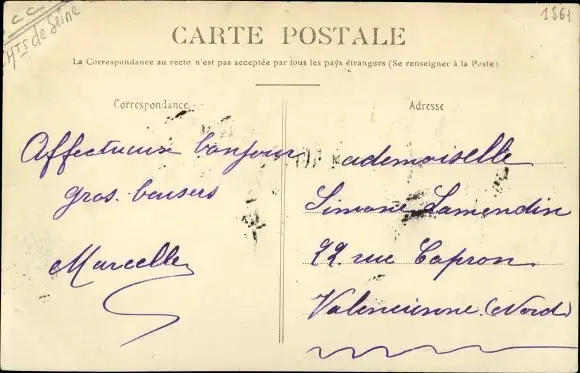 CC
Hts de Seine
1561
CARTE POSTALE
La Correspondance au recto n'est pas acceptée par tous les pays étrangers (Se renseigner à la Poste)
Correspondance
Affectueux bonjour
gros. beusers
Marcelle
Adresse
Mademoiselle
Simone Lamendin
92. rue Capron
Valencienne. (Nord)